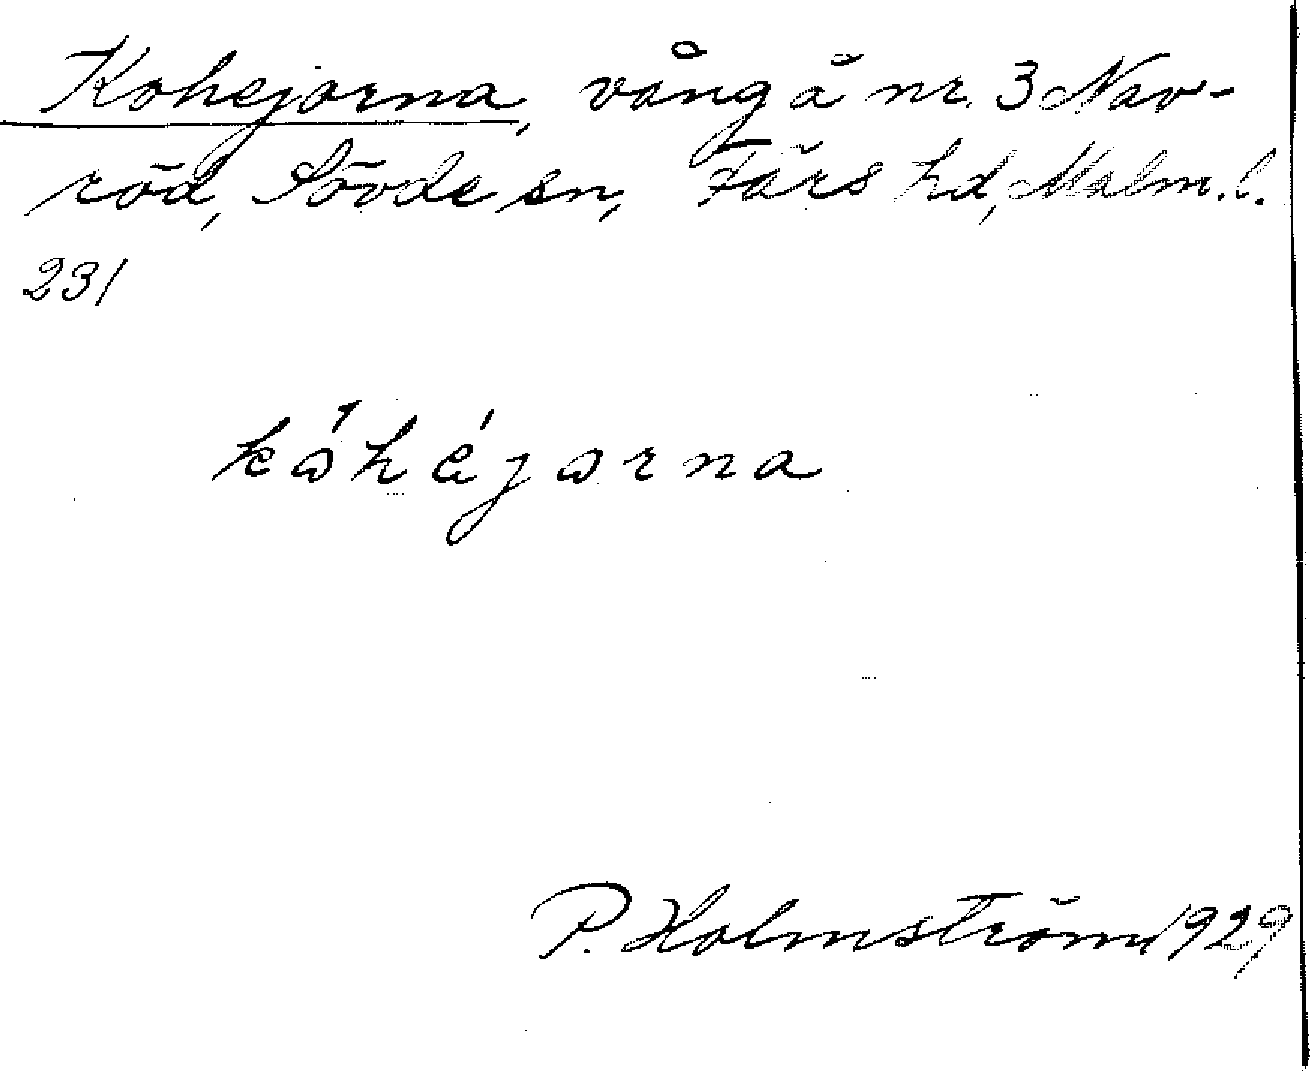 Kohejorna, vång å nr. 3 Nav-
röd, Sövde sn, Färs hd, Malm. l.
231
kóhéjorna
P. Holmström 1929